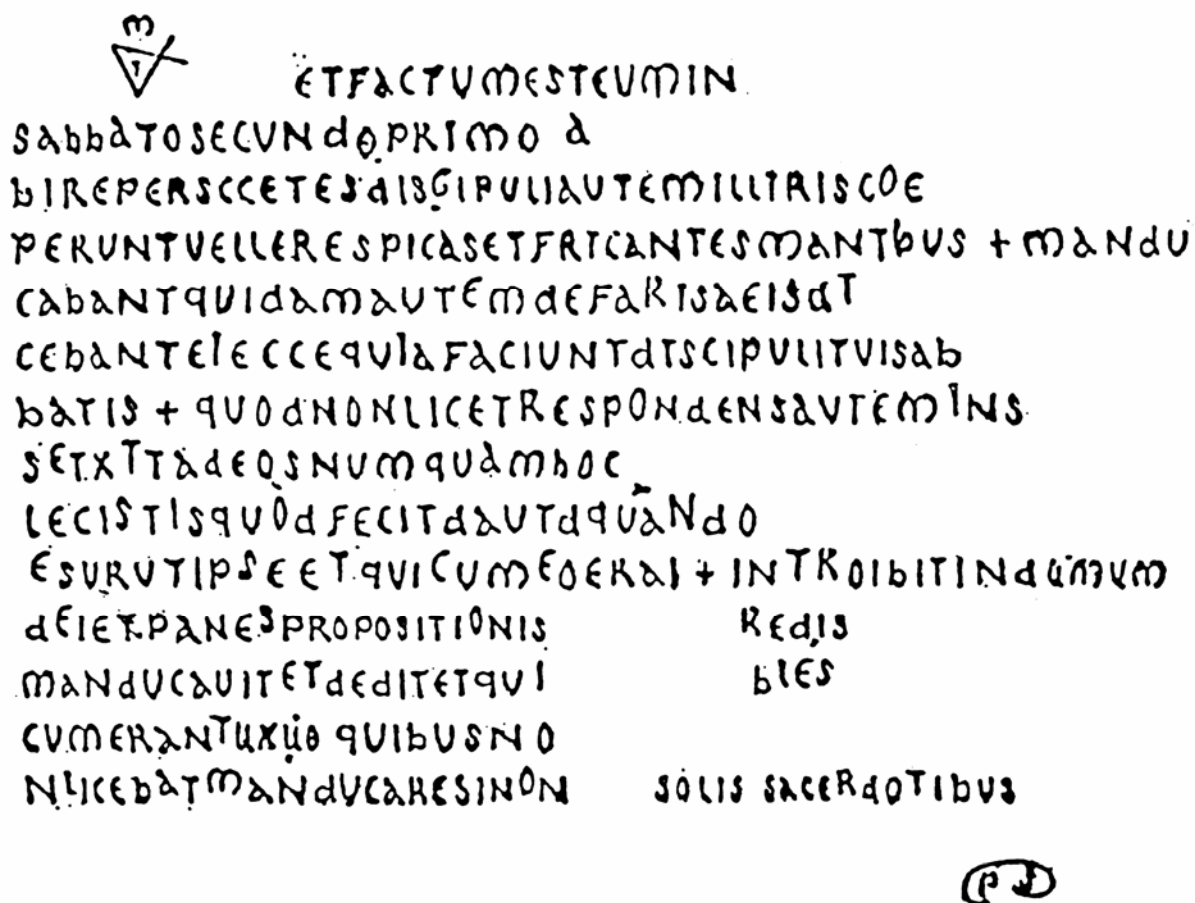 M
T
ETFACTUMESTEUMIN
SAbbATOSECUNdOPRIMO A
bIREPERSCCETESdISGIPULIAUTEMILLITRISCOE
PERUNTVELLERESPICASETFRTCANTESMANTbUS + MANdU
CAbANTQUIdAMAUTEMdEFARISAEISdT
CEbANTEIECCEQUIAFACIUNTdTSCIPULITVISAb
bATIS + QUOdNONLICETRESPONdENSAUTEMINS
SETXTTAdEOSNUMQUAMhOC
LECISTISQUOdFECITdAUTdQUANdO
ESURUTIPSEETQUICUMEOERAI + INTROIbITINdUMUM
dEIETPANESPROPOSITIONIS REdIS
MANdUCAUITETdEdITETQUI bLES
CUMERANTUXUO QUIbUSNO
NLICEbATMANdUCARESINON SOLIS SACERdOTIbUS
PS